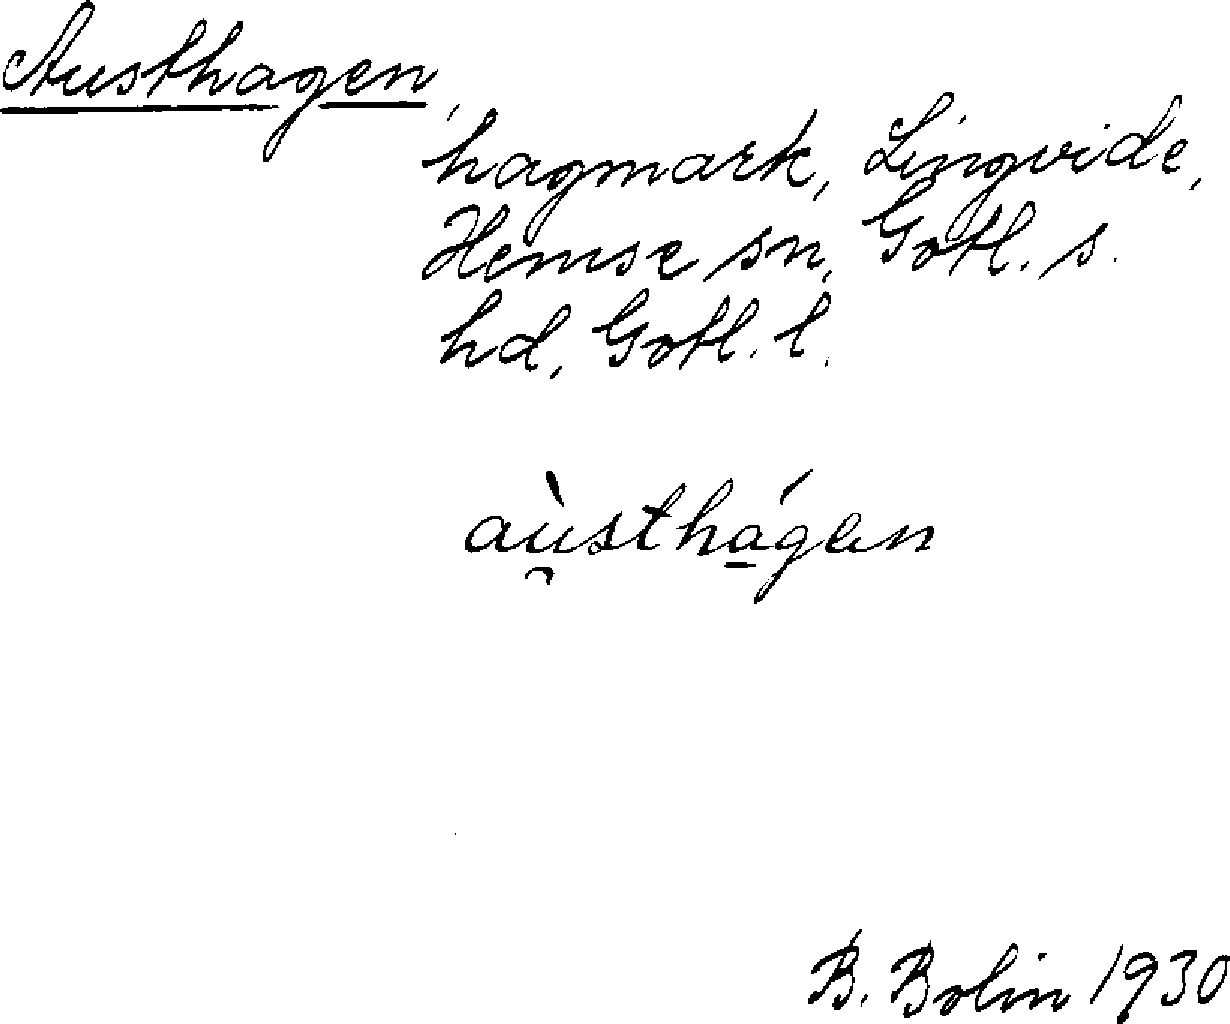 Austhagen,
hagmark, Lingvide,
Hemse sn, Gotl. s.
hd, Gotl. l.
aù̯sthа̱́gen
B. Bolin 1930